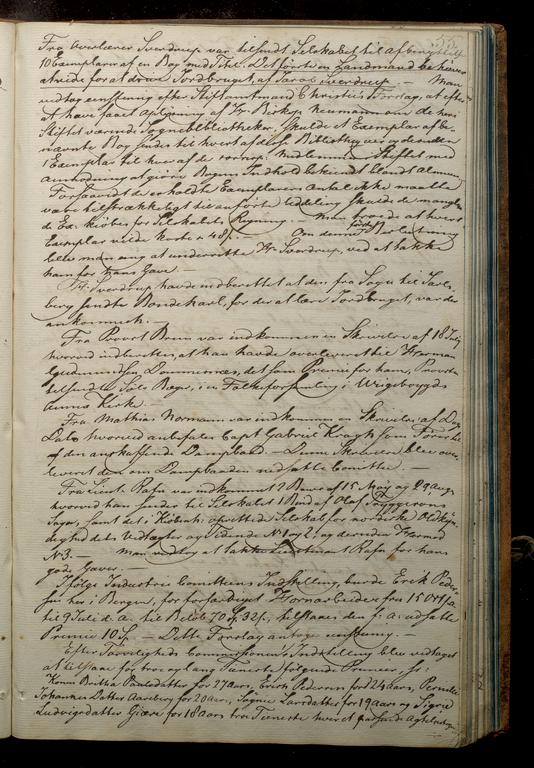 55
Fra Overlærer Sverdrup var tilsendt Selskabet til Afbenyttelse
10 Exemplarer af en Bog med Titel: Det første en Landmand behøver
at vide for at drive Jordbruget, af Jacob Sverdrup — Man
vedtog eenstemmig efter Stiftamtmand Christies Forslag, at efter
at have faaet Oplysning af Hr. Biskop Neumann om de her i
Stiftet værende Sognebibliotheker, skulde et Exemplar af be-
nævnte Bog sendes til hvert af disse Bibliotheker og desuden
1 Exemplar til hver af de Medlemmer i Stiftet med
Anmodning at gjøre Bogens Indhold bekiendt blandt Almuen.
Forsaavidt de erholdte Exemplarers Antal ikke maatte
være tilstrækkeligt til anførte Uddeling skulde de mangle
de Ex. kiøbes for Selskabets Regning. — Man troede at hvert
Exemplar vilde koste 48 ſ. — Om denne Beslutning
blev man enig at underrette Hr Sverdrup, ved at takke
ham for hans Gave. —
Hr. Sverdrup havde indberettet at den fra Sogn til Jarls-
berg sendte Bondekarl, for der at lære Jordbruget, var der
ankommen. —
Fra Provst Brun var indkommen en Skrivelse af 18 Juli
hvorved indberettes, at han havde overleveret til Herman
det som Præmie for ham, Provsten
tilsendte Sølv Bæger, i en Folkeforsamling i
Kirke.
Fra Mathias Normann var indkommen en Skrivelse af Dags
Dato hvorved anbefales Capt Gabriel Kragh som Fører
af den anskaffende Dampbaad. — Denne Skrivelse blev over-
leveret den om Dampbaaden nedsatte Comitee. —
Fra Lieut. Rafn var indkommet 2 Breve af 15 May og 29 Aug.
hvorved han sender til Selskabet 1 Bind af Olaf Tryggvesens
Saga, samt det i Kiøbenh: oprettede Selskab for nordiske Oldkyn-
digheds Vedtægter og Tidende No 1 og 2 og desuden Hermod
No 3. — Man vedtog at takke Lieutenant Rafn for hans
gode Gaver.
Ifølge Industrie Comiteens Indstilling, burde Erik Peder-
sen her i Bergen, for forfærdiget fra 15 Octb. f. A.
til 9 Juli d. A. til Beløb 70 Sp. 32 ſ., tilstaaes den f. A. udsatte
Præmie 10 Sp. — Dette Forslag antoges eenstemmig. —
Efter Tarveligheds Commissionens Indstilling blev vedtaget
at tilstaae for troe og lang Tieneste følgende Præmier,
Konen Brithe for 27 Aars, Erich Pedersen for 24 Aars, Pernille
Johannes Datter Aarsberg for 20 Aars, Larsdatter for 19 Aars og Sigrie
Ludvigsdatter Giære for 18 Aars troe Tieneste hver et